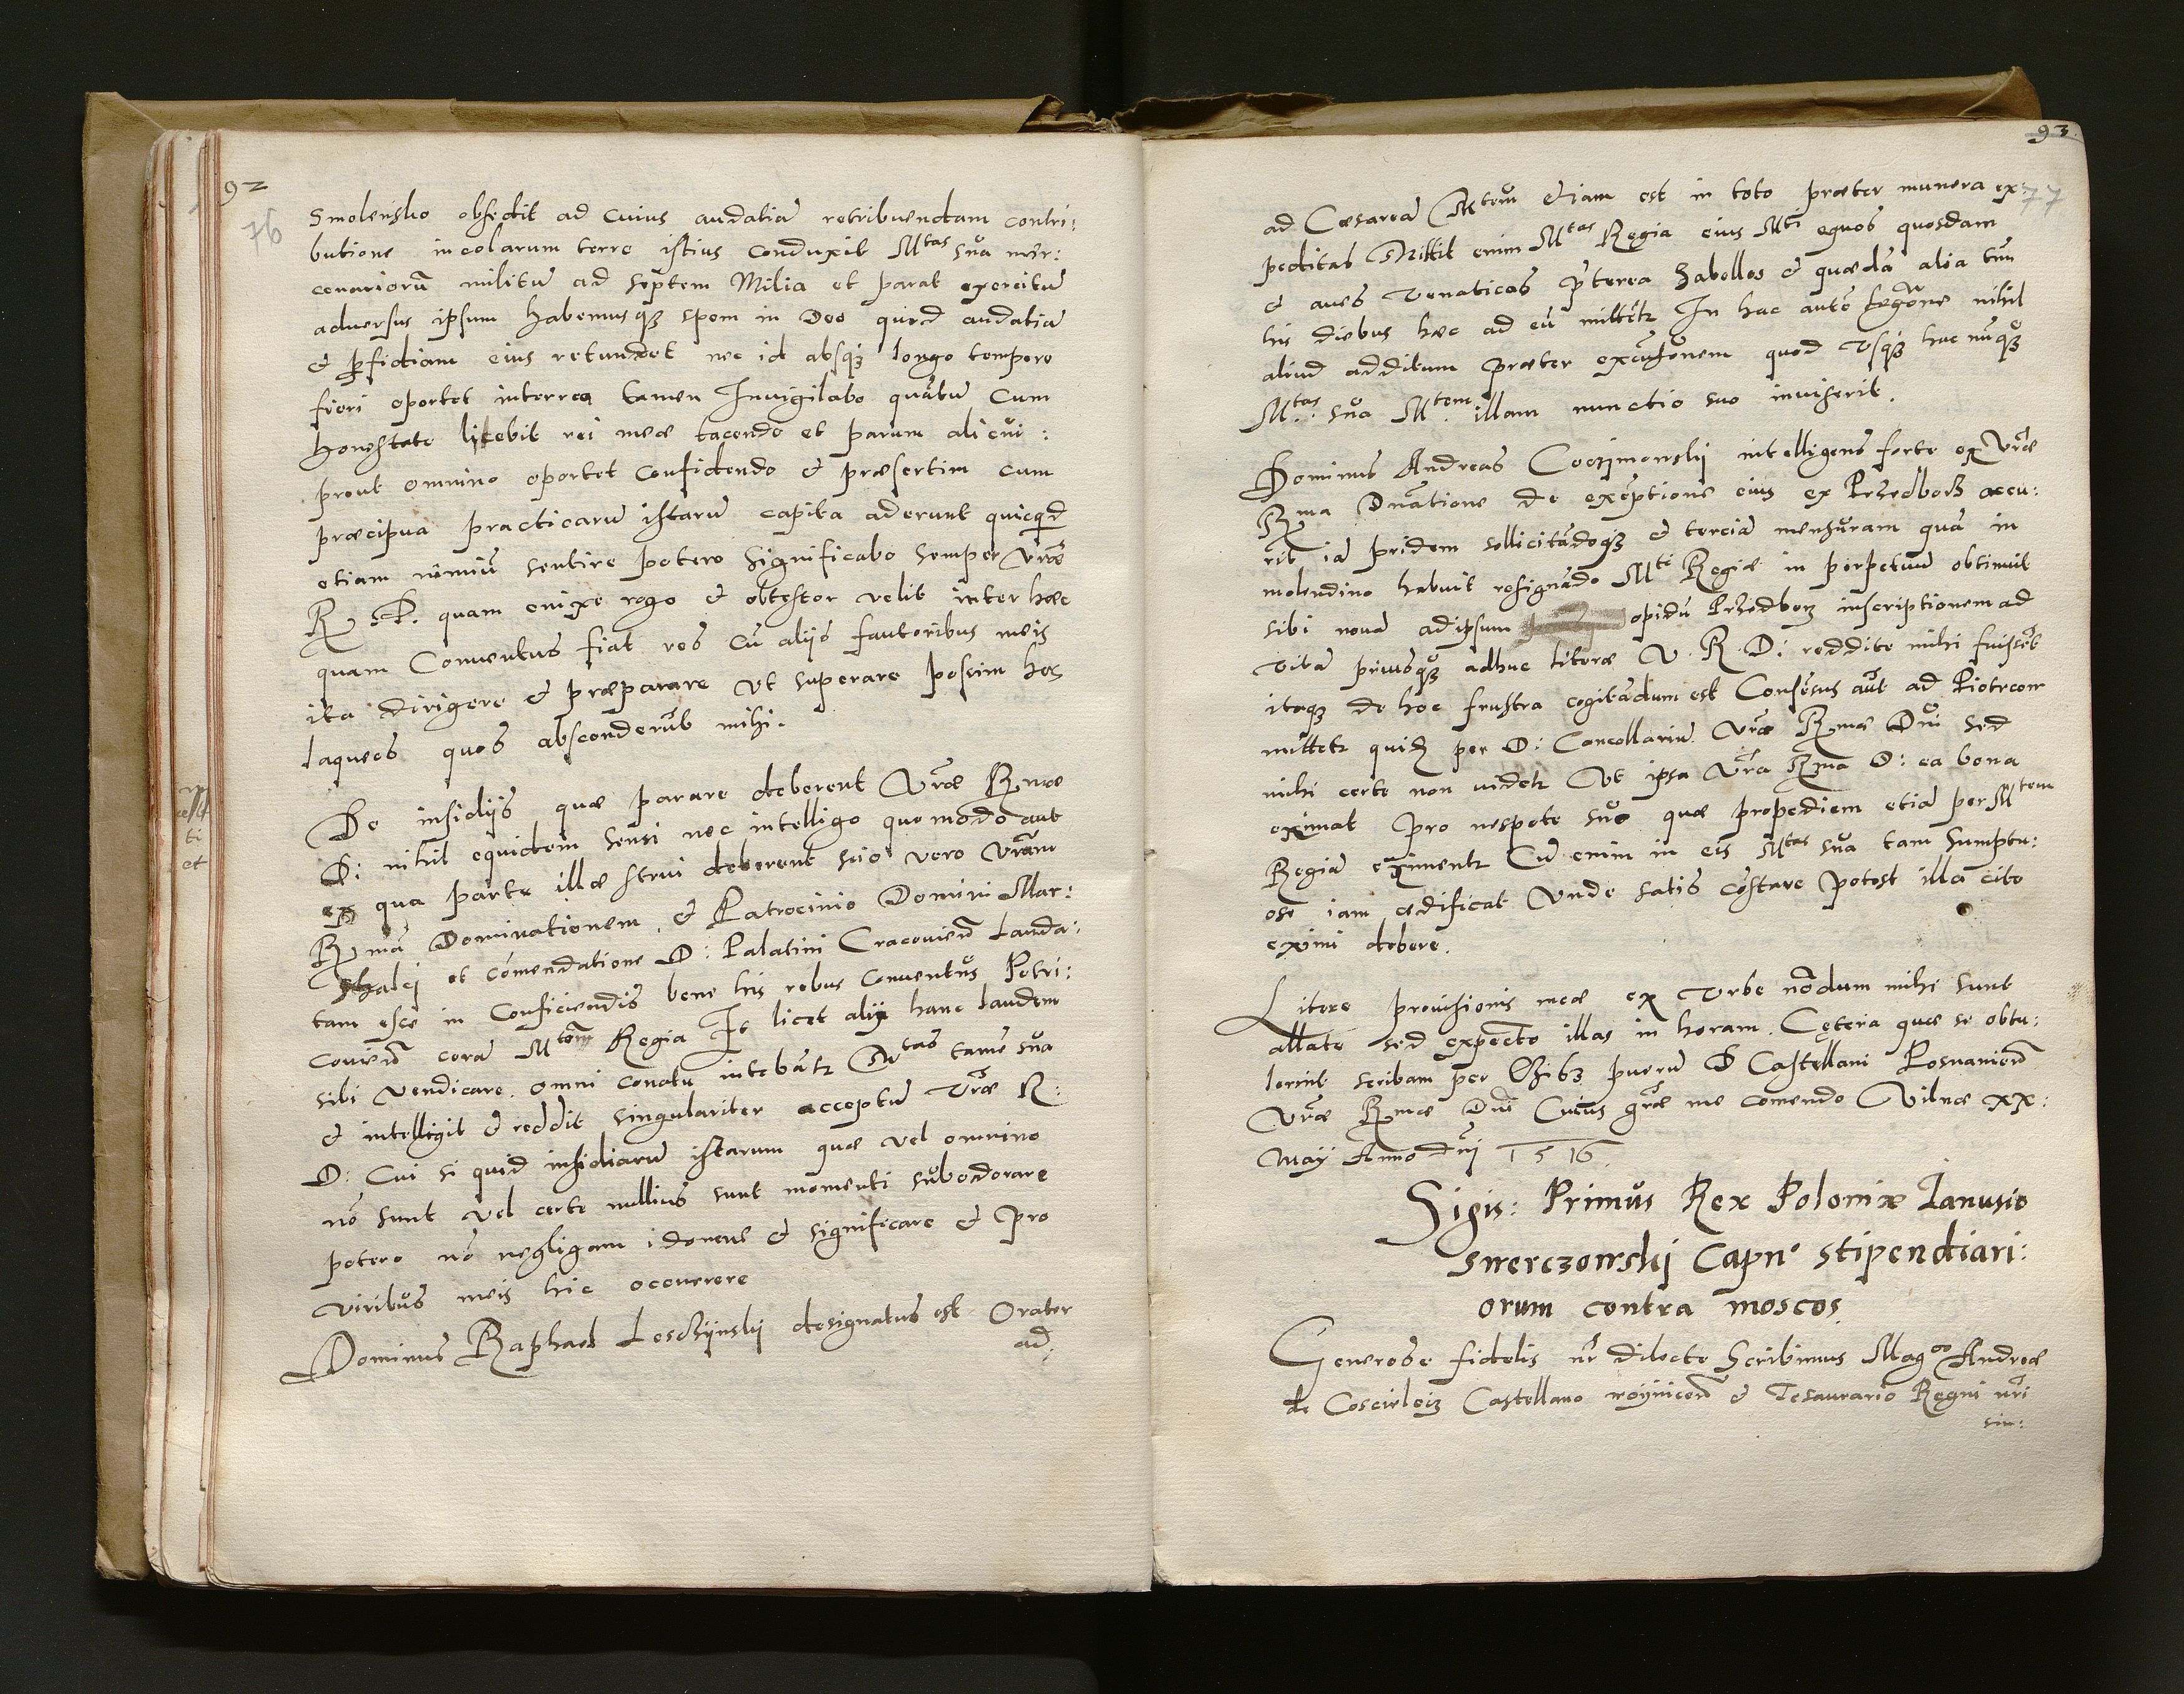 92
76
Smolensko obsedit ad cuius audatiã retribuendam contri:
butione incolarum terre istius conduxit Mtas sua mer:
cenariorũ militũ ad septem Milia et parat exercitũ
adversus ipsum habemusq3 spem in Deo quod audatiã
& pfidiam eius retundet nec id absq3 longo tempore
fieri oportet interea tamen Invigilabo quãtũ Cum
honestate licebit rei meæ tacendo et parum alicui:
prout omnino oportet confidendo & præsertim cum
præcipua practicarũ istarũ capita aderunt quicqd
etiam nimiũ sentire potero significabo semper Vræ
R. P. quam enixe rogo & obtestor velit inter hæc
quam Conventus fiat res cũ alijs fautoribus meis
ita dirigere & præparare Ut superare possim hos
laqueos quos absconderũt mihi.
De insidijs quæ parare deberent Vræ Rmæ
D: nihil equidem sensi nec intelligo quo modo aut
ex qua parte illæ strui deberent scio vero Vrãm
Rmã Dominationem & Patrocinio Domini Mar:
shalci et cõmendatione D: Palatini Cracovien̄ lauda:
tam esse in conficiendis bene his rebus conventus Petri:
covien̄ corã Mtem Regia Et licet alij hanc laudem
sibi vendicare omni conatu intebãtr Mtas tamẽ sua
& intelligit & reddit singulariter acceptũ Vræ R:
D: Cui si quid insidiarũ istarum quæ vel omnino
nõ sunt vel certe nullius sunt momenti subodorare
potero nõ negligam idonee & significare & pro
viribus meis hic occurrere
Dominus Raphael Leschijnskij designatus est Orator
ad
ti
et
93
77
ad Cæsareã Mtem & iam est in toto præter munera ex:
peditas Mittit enim Mtas Regia eius Mti equos quosdam
& aves venaticas pterea Zabellos & quædã alia tñ
his diebus hæc ad eũ mittẽtr In hac autẽ legãone nihil
aliud additum præter excusõnem quod Usq3 hac nũq3
Mtas sua Mtem illam nunctio suo inviserit.
Dominus Andreas Coczimowskij intelligens forte ex Vræ
Rma Dnatione de exẽptione eius ex Przedborz accu:
rit iã pridem sollicitãdoq3 & terciã mensuram quã in
molendino habuit resignãdo Mti Regiæ in perpetuũ obtinuit
sibi novã ad ipsum opidũ Przedborz inscriptionem ad
vitã priusq3 adhuc literæ V. R. D: reddite mihi fuissẽt
itaq3 de hoc frustra cogitãdum est Consẽsus aũt ad Piotrcow
mittetr per D: Cancellariũ Vræ Rmæ Dni sed
mihi certe non videtr Ut ipsa Vra Rma D: ea bona
eximat pro nepote suo quæ propediem etiã per Mtem
Regiã eximentr Cũ enim in eis Mtas sua tam sumptu:
ose iam ædificat Unde satis cõstare potest illã cito
eximi debere.
Litere provisionis meæ ex Urbe nõdum mihi sunt
allate sed expecto illas in horam. Cętera quæ se obtu:
lerint scribam per puerũ D Castellani Posnanien̄
Vræ Rmæ Dni Cuius græ me comendo Vilnæ xx:
Maij Anno dnj 1516.
Sigis: Primus Rex Poloniæ Ianusio
Swerczowskij Capno stipendiari:
orum contra moscos.
Generose fidelis nr dilecte Scribimus Magco Andreæ
de Coscieleiz Castellano woijnicen̄ & Tesaurario Regni nri
sin: